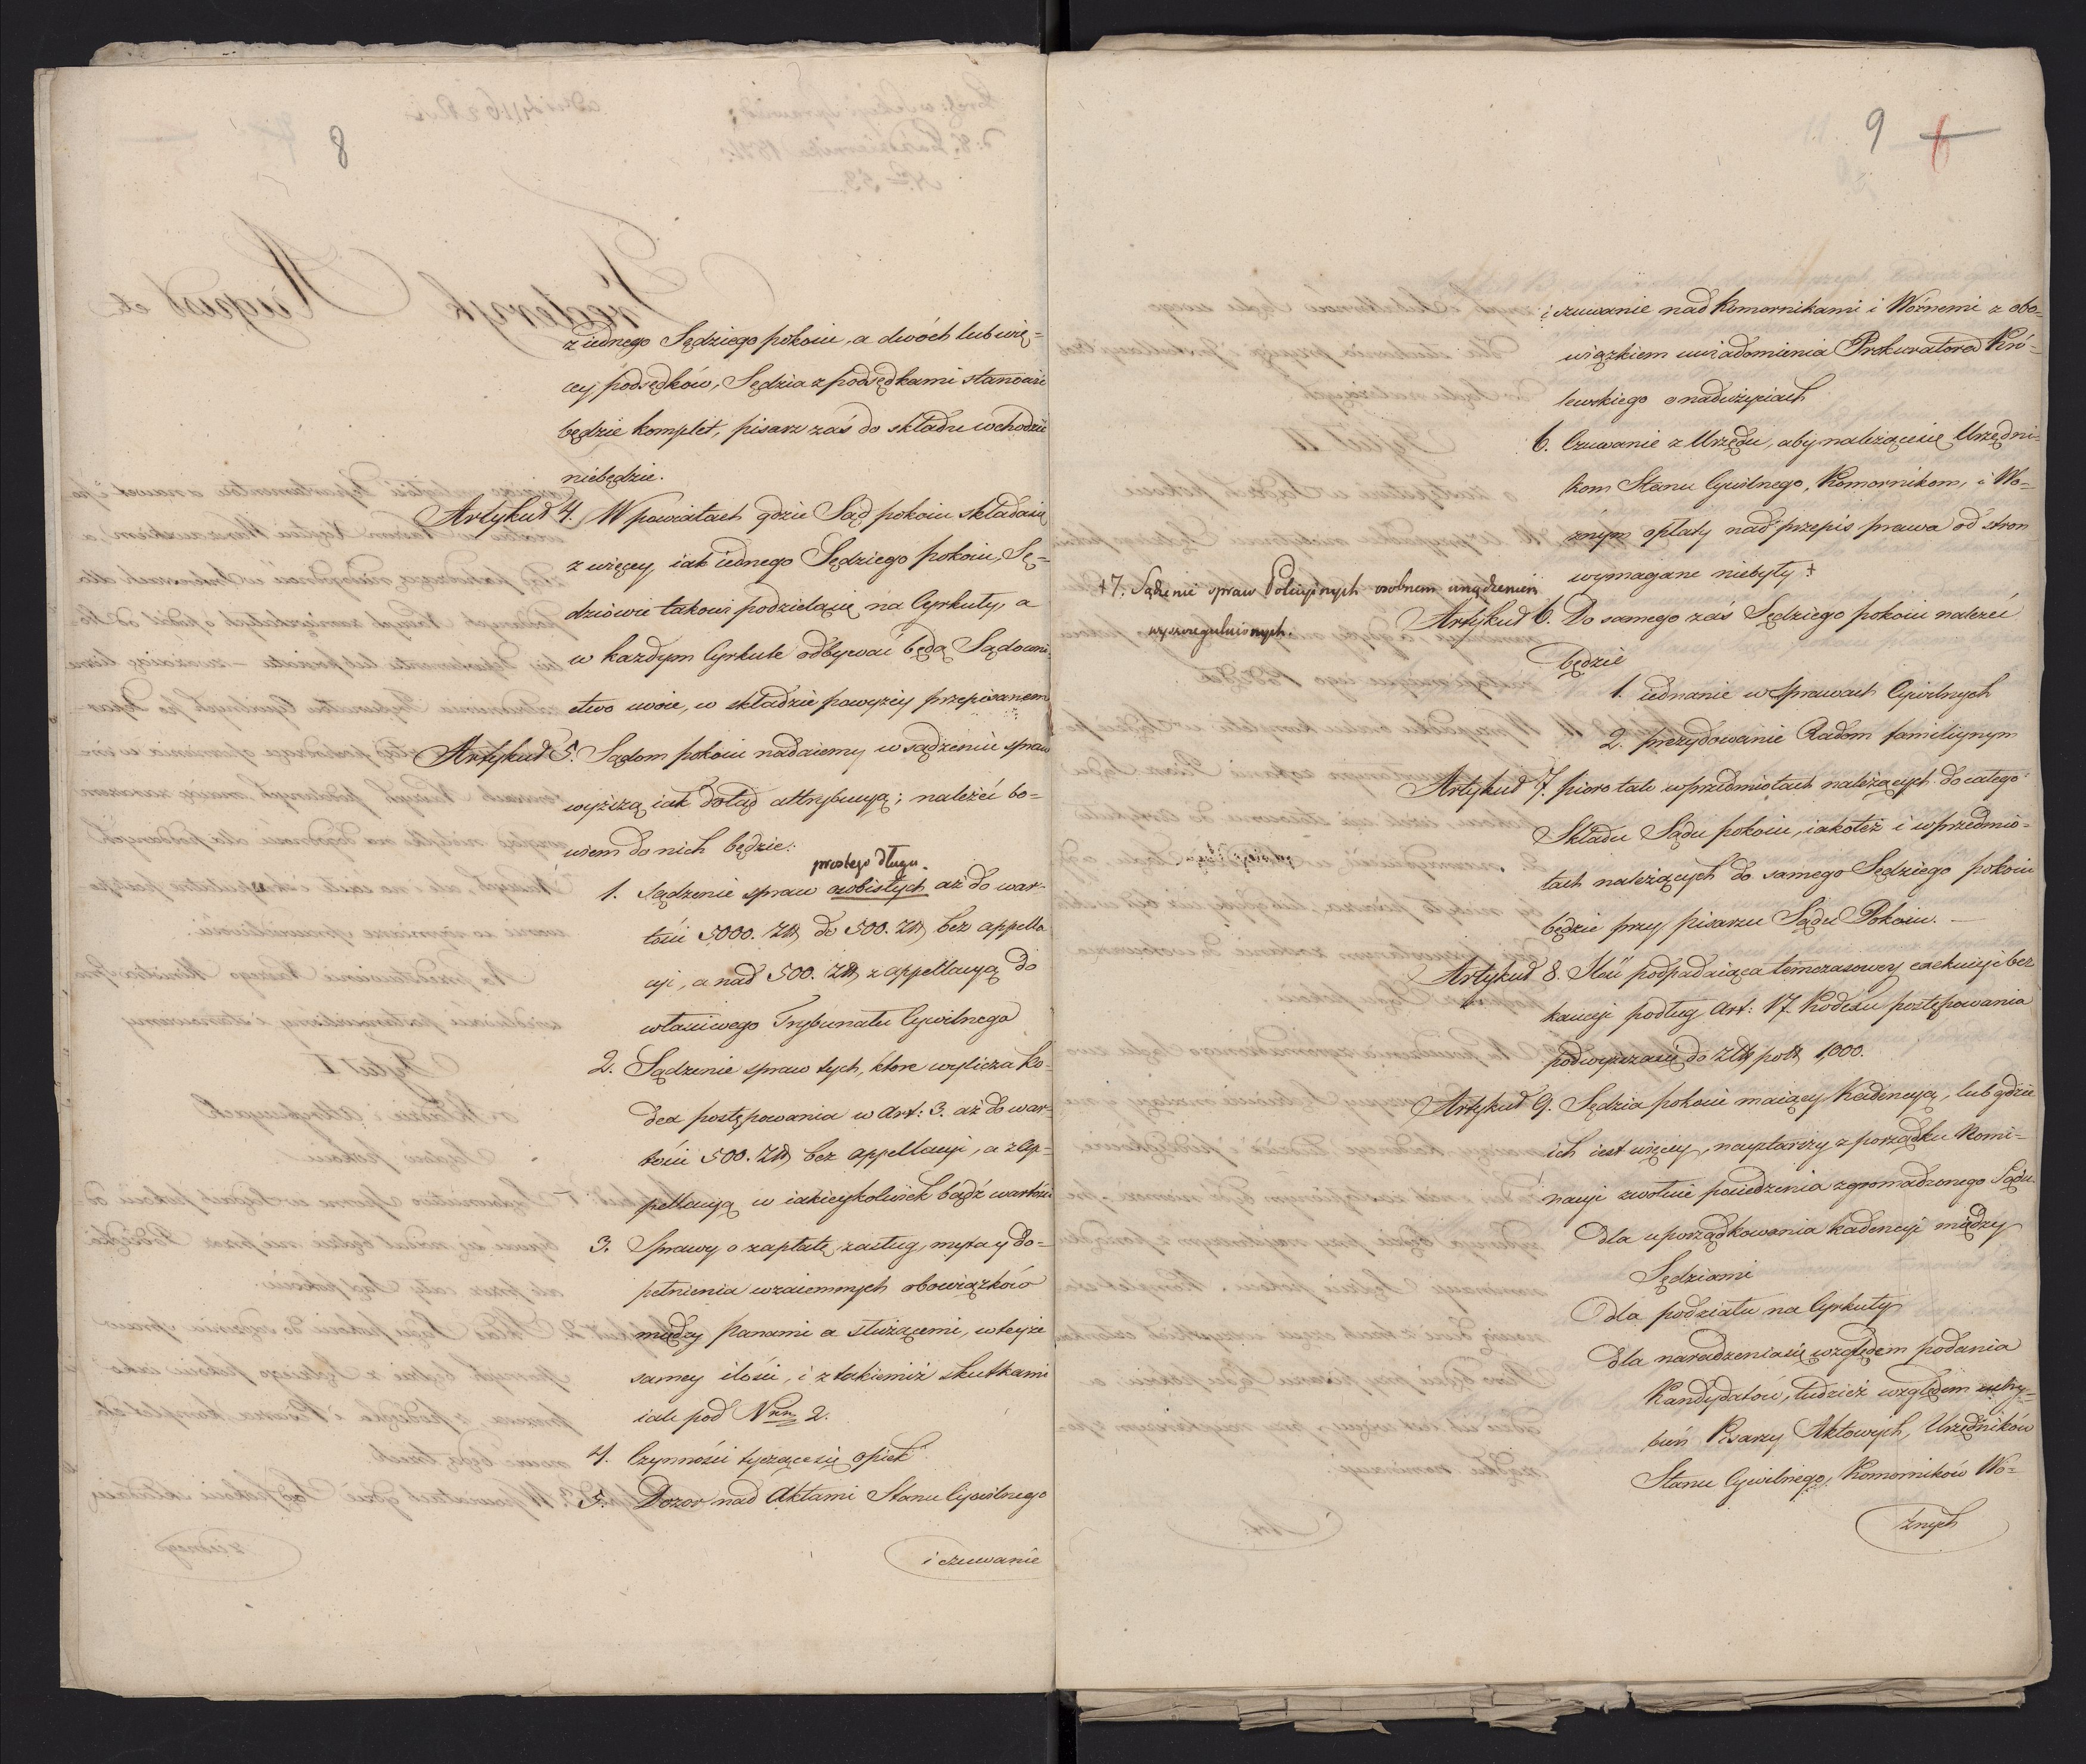 8
z iednego Sędziego pokoiu, a dwóch lub wię-
cey podsędków, Sędzia z podsędkami stanowić
będzie komplet, pisarz zaś do składu wchodzić
niebędzie.
Artykuł 4. W powiatach gdzie Sąd pokoiu składa się
z więcey iak iednego Sędziego pokoiu, Sę-
dziowie takowi podzielą się na Cyrkuły, a
w każdym Cyrkule odbywać będą Sądowni-
ctwo swoie, w składzie powyżey przepisanem
Artykuł 5. Sądom pokoiu nadaiemy w sądzeniu spraw
wyższą iak dotąd attrybucyą; należeć bo-
wiem do nich będzie:
prostego długu.
1. Sądzenie spraw osobistych aż do war-
tości 5000. Złł do 500. Złł bez appella-
cyi, a nad 500. Złł z appellacyą do
właściwego Trybunału Cywilnego
2. Sądzenie spraw tych, które wylicza Ko-
dex postępowania w Art: 3. aż do war-
tości 500. Złł bez appellacyi, a z Ap-
pellacyą w iakieykolwiek bądź wartości
3. Sprawy o zapłatę zasług, myta y do-
pełnienia wzaiemnych obowiązków
między panami a służącemi, w teyże
samey ilości, i z takiemiż skutkami
iak pod Nrm 2.
4. Czynności tyczące się opiek
5. Dozor nad Aktami Stanu Cywilnego
i czuwanie
9 6
i czuwanie nad Komornikami i Woźnemi z obo-
wiązkiem uwiadomienia Prokuratora Kró-
lewskiego o nadużyciach
6. Czuwanie z Urzędu, aby należące się Urzędni-
kom Stanu Cywilnego, Komornikom, i Wo-
źnym opłaty nad przepis prawa od stron
wymagane niebyły ‡
‡7. Sądzenie spraw Policyinych osobnem urządzeniem
wyszczegulnionych.
Artykuł 6. Do samego zaś Sędziego pokoiu należeć
będzie
1. iednanie w Sprawach Cywilnych
2. prezydowanie Radom familiynym
Artykuł 7. pioro tak w przedmiotach należących do całego
Składu Sądu pokoiu, iakoteż i w przedmio-
tach należących do samego Sędziego pokoiu
będzie przy pisarzu Sądu Pokoiu. —
Artykuł 8. Ilość podpadaiąca temczasowey exekucyi bez
kaucyi podług Art: 17. Kodexu postępowania
podwyższa się do Złł poll 1,000.
Artykuł 9. Sędzia pokoiu maiący Kadencyą, lub gdzie
ich iest więcey, naystarszy z porządku Nomi-
nacyi zwołuie posiedzenia zgromadzonego Sądu
dla uporządkowania kadencyi między
Sędziami
dla podziału na Cyrkuły
dla naradzenia się względem podania
Kandydatów, tudzież względem
Pisarzy Aktowych, Urzędników
Stanu Cywilnego, Komorników Wo-
źnych